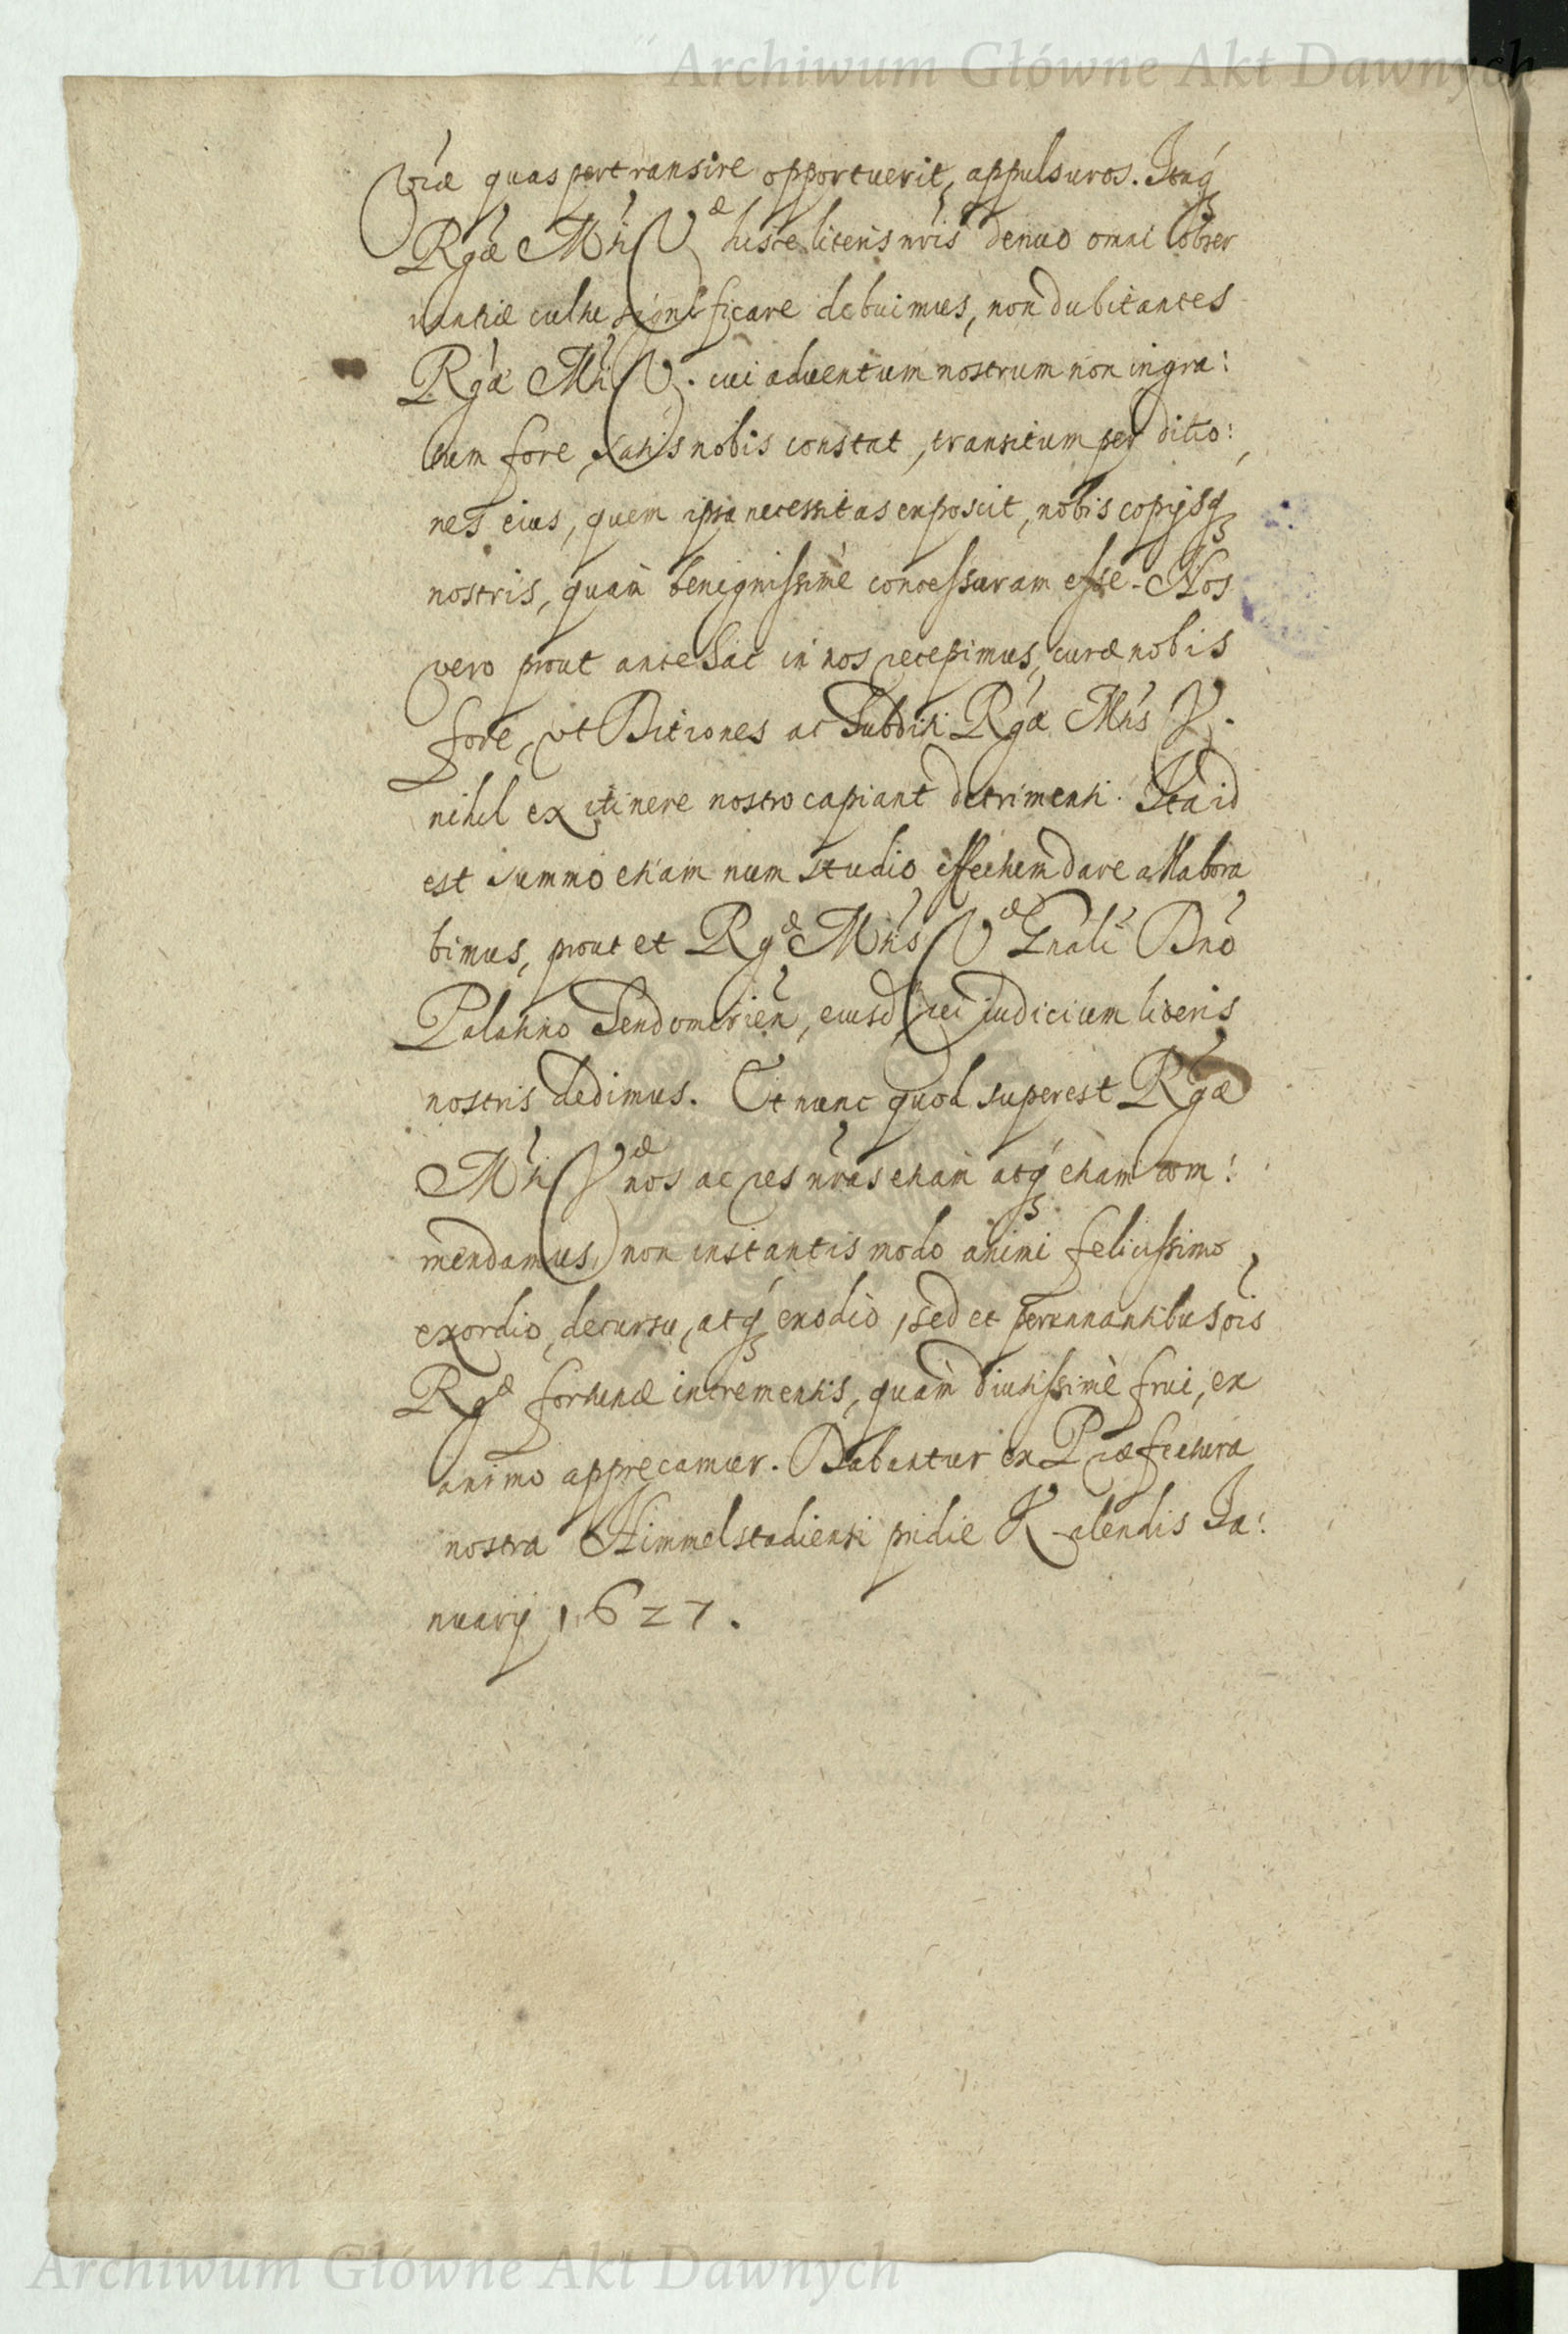 Archiwum Główne Akt Dawnych
viæ quas pertransire opportuerit, appulsuros. Itaq́
Rgæ Mti V hisce literis nris denuo omni obser
vantiæ cultu significare debuimus, non dubitantes
Rgæ Mti V. cui aduentum nostrum non ingra:
tum fore, satis nobis constat, transitum per ditio:
nes eius, quem ipsa necessitas exposcit, nobis copijsq
nostris, quam benignissimè concessuram esse. Nos
vero prout antehac in nos recepimus, curæ nobis
fore, vt Ditiones ac Subditi Rgæ Mtis V.
nihil ex itinere nostro capiant detrimenti. Ita id
est summo etiam num studio effectum dare allabora
bimus, prout et Rgæ Mtis Væ Gnali Dno
Palatino Sendomirien, eiusd rei iudicium literis
nostris dedimus. Et nunc quod superest Rgæ
Mti Væ nos ac res nras etiam atq́ etiam com:
mendamus, non instantis modo animi felicissimo
exordio, decursu, atq́ exodio, sed et perennantibus ois
Rgæ fortunæ incrementis, quàm diutissimè frui, ex
animo apprecamur. Dabantur ex Præfectura
nostra Himmelstadiensi pridie Kalendis Ja:
nuarij 1627.
Archiwum Główne Akt Dawnych